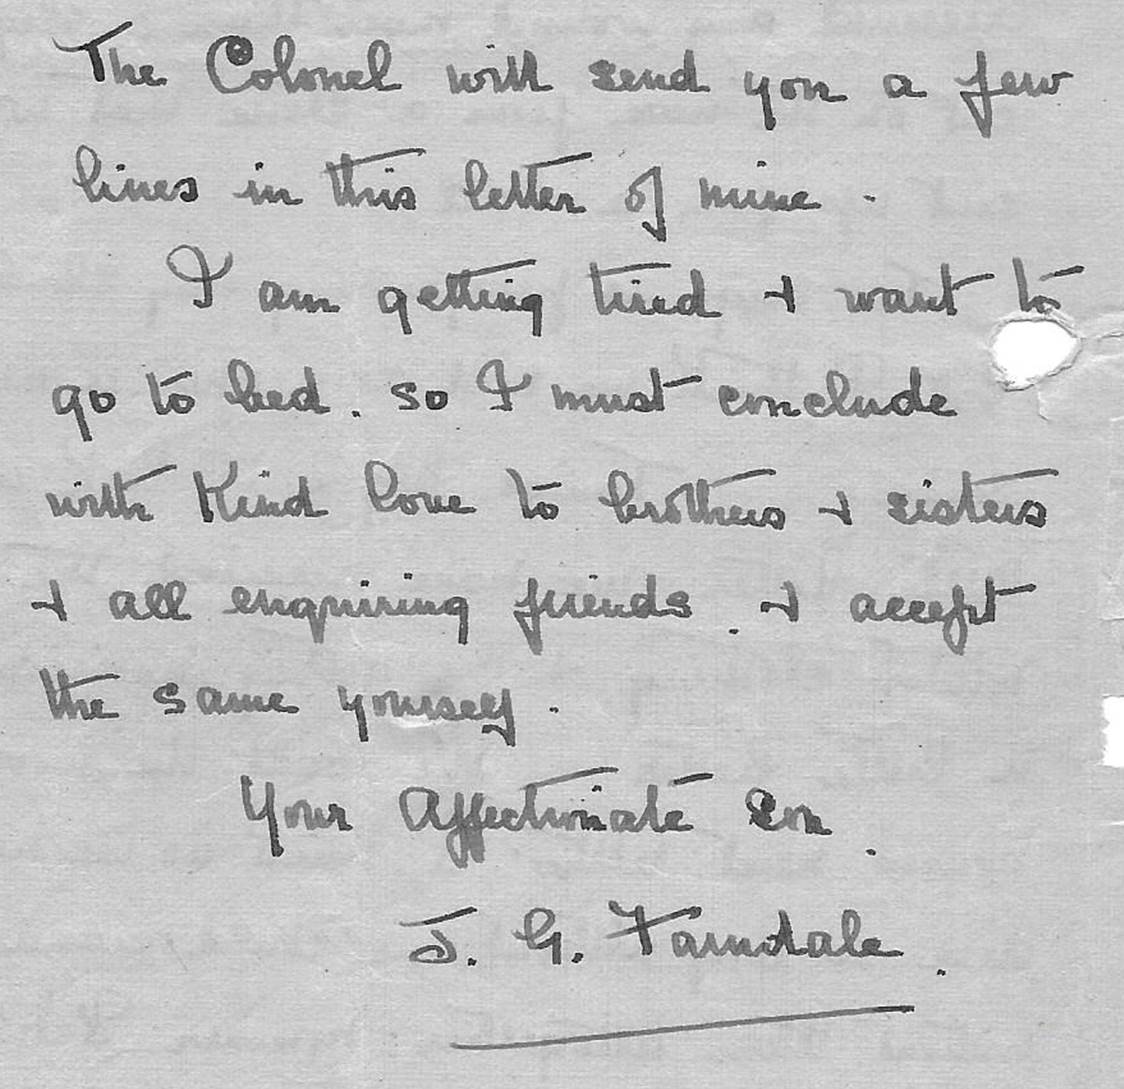 The Colonel will send you a few
lines in this letter of mine.
I am getting tired & want to
go to bed. so I must conclude
with Kind love to brothers & sisters
& all enquiring friends. & accept
the same yourself.
Your Affectionate Son.
J. G. Farndale.